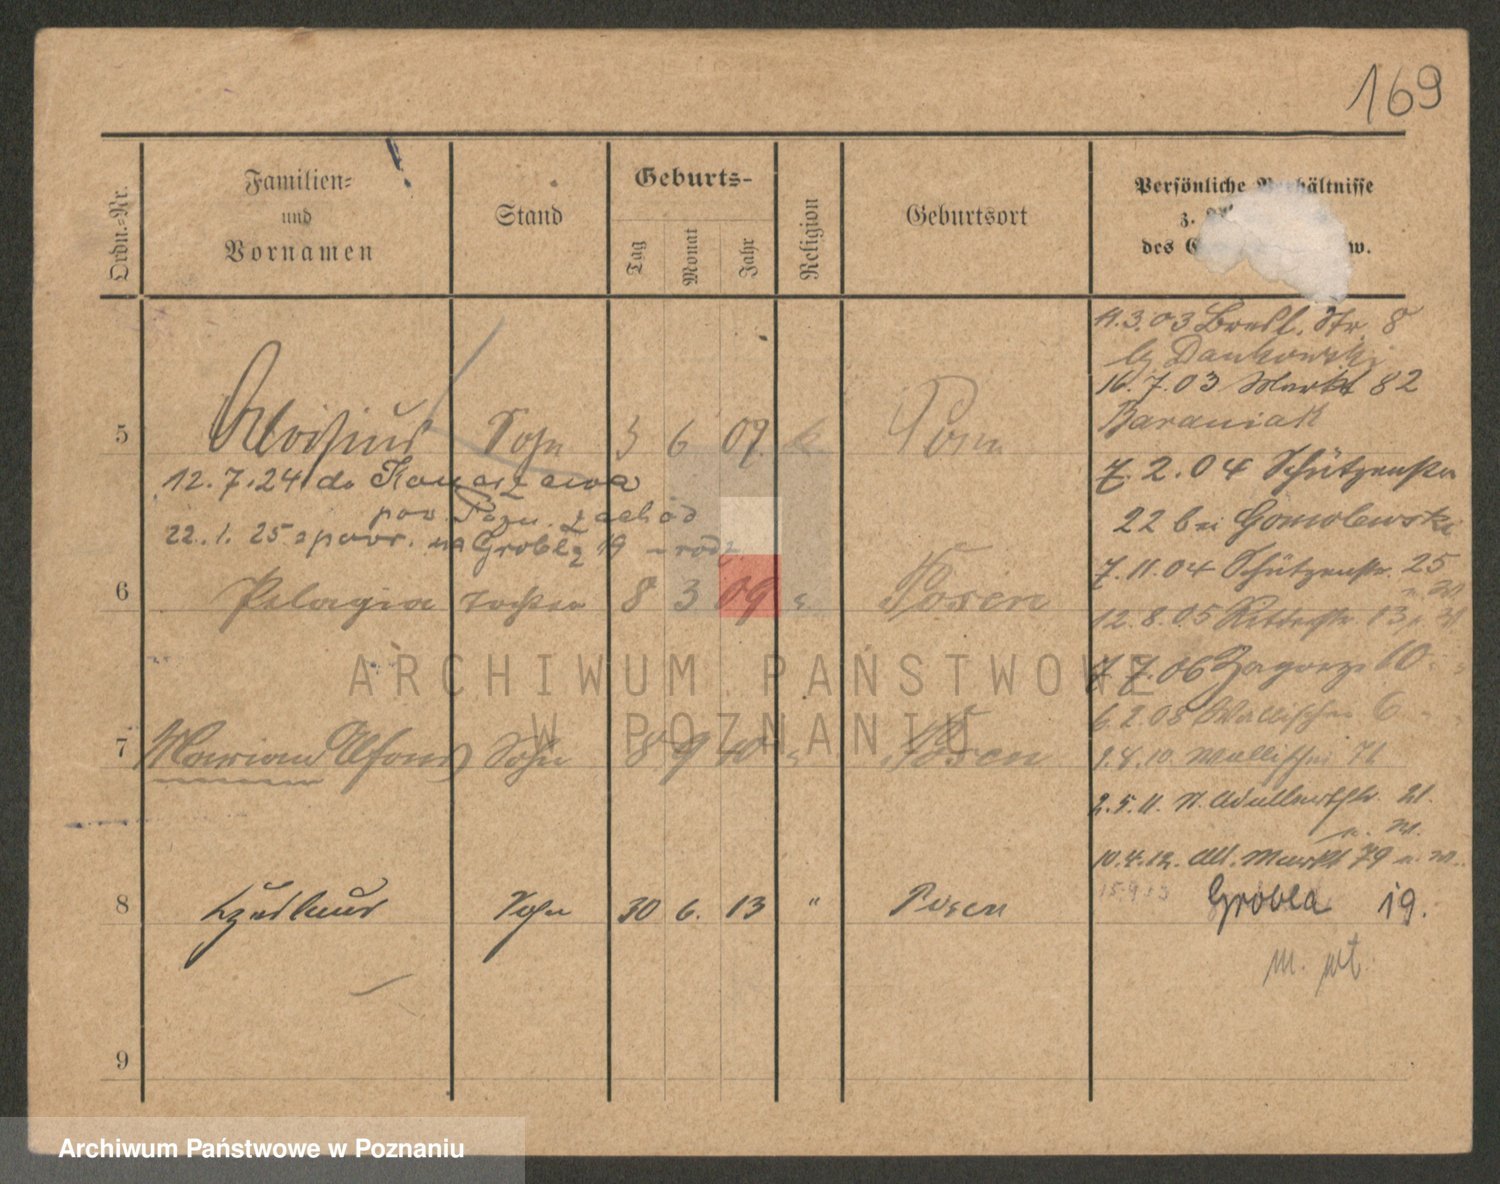 169
Ordn.-Nr.
Familien-
und
Vornamen
Stand
Geburts-
Tag
Monat
Jahr
Religion
Geburtsort
Persönliche Verhältnisse
z.
des
w.
11.3.03 Bresl. Str. 8
by Dankowski
16.7.03 Markt 82
Baraniak
5 Aloisius Sohn 3 6 07. k. Posen
7.2.04 Schützenstr
12.7.24 do
22 bei Gomolewski
pow. Pozn. zachód
22.1.25 z powr. na Groblę 19 – rodz.
7.11.04 Schützenstr. 25
6 Pelagia Tochter 8 3 09 " Posen
12.8.05 Ritterstr. 13
7.7.06 Zagorze 10
6.2.08 Wallischei 6
7 Marian Alfons Sohn 8 9 10 " Posen
9.4.10. Wallischei 71
2.5.11. 21.
u. W.
10.4.12. Alt. Markt 79 u. W.
15.9.13 Grobla 19.
8 Sohn 30 6. 13 " Posen
9
ARCHIWUM PAŃSTWOWE
W POZNANIU
Archiwum Państwowe w Poznaniu